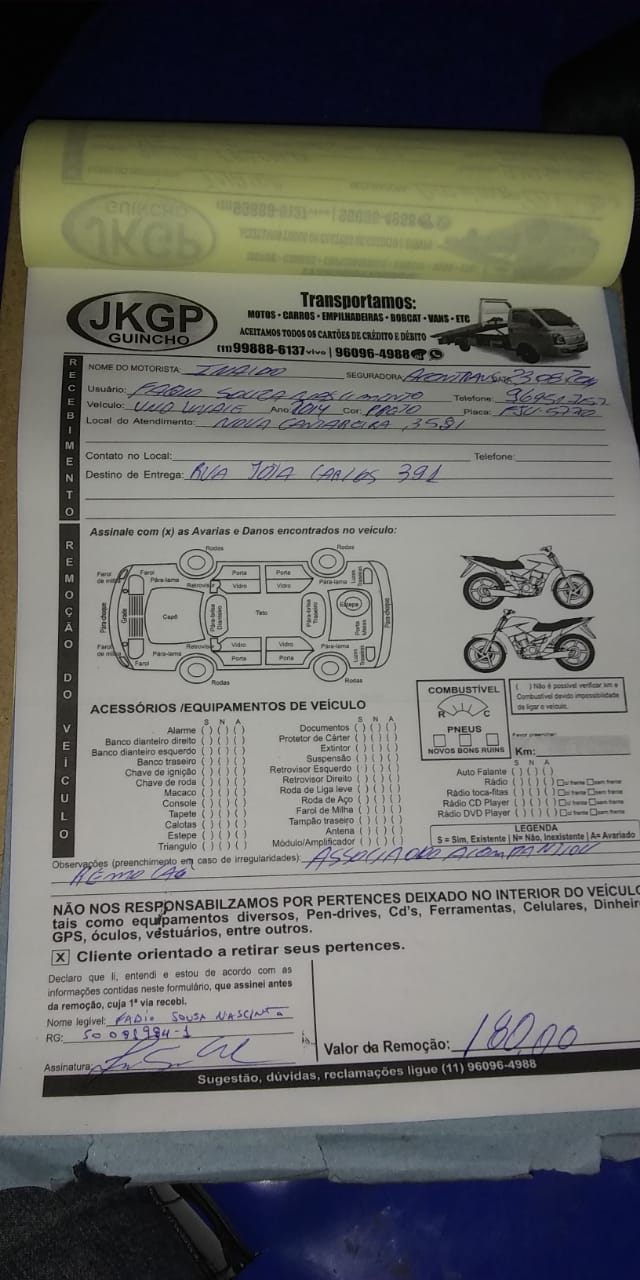 JKGP
GUINCHO
Transportamos:
MOTOS • CARROS • EMPILHADEIRAS • BOBCAT • VANS • ETC
ACEITAMOS TODOS OS CARTÕES DE CRÉDITO E DÉBITO
(11) 99888-6137 vivo | 96096-4988
RECEBIMENTO
NOME DO MOTORISTA: SEGURADORA:
Usuário: FABIO SOUZA NASCIMENTO Telefone:
Veículo: UNO Ano: 2014 Cor: PRETO Placa:
Local do Atendimento: NOVA
Contato no Local: Telefone:
Destino de Entrega: RUA CARLOS 391
REMOÇÃO DO VEÍCULO
Assinale com (x) as Avarias e Danos encontrados no veículo:
Rodas Rodas
Farol de milha Farol Pára-lama Retrovisor Porta Porta Vidro Vidro Pára-lama Luzes Traseira
Pára-choque Grade Capô Pára-brisa Dianteiro Teto Pára-brisa Traseiro Estepe Porta Malas Pára-choque
Farol de milha Farol Pára-lama Retrovisor Vidro Vidro Porta Porta Pára-lama Luzes Traseira
Rodas Rodas
ACESSÓRIOS /EQUIPAMENTOS DE VEÍCULO
S N A
Alarme ( ) ( ) ( )
Banco dianteiro direito ( ) ( ) ( )
Banco dianteiro esquerdo ( ) ( ) ( )
Banco traseiro ( ) ( ) ( )
Chave de ignição ( ) ( ) ( )
Chave de roda ( ) ( ) ( )
Macaco ( ) ( ) ( )
Console ( ) ( ) ( )
Tapete ( ) ( ) ( )
Calotas ( ) ( ) ( )
Estepe ( ) ( ) ( )
Triangulo ( ) ( ) ( )
S N A
Documentos ( ) ( ) ( )
Protetor de Cárter ( ) ( ) ( )
Extintor ( ) ( ) ( )
Suspensão ( ) ( ) ( )
Retrovisor Esquerdo ( ) ( ) ( )
Retrovisor Direito ( ) ( ) ( )
Roda de Liga leve ( ) ( ) ( )
Roda de Aço ( ) ( ) ( )
Farol de Milha ( ) ( ) ( )
Tampão traseiro ( ) ( ) ( )
Antena ( ) ( ) ( )
Módulo/Amplificador ( ) ( ) ( )
COMBUSTÍVEL
R C
PNEUS
NOVOS BONS RUINS
( ) Não é possível verificar km e
Combustível devido impossibilidade
de ligar o veículo.
Favor preencher:
Km:
S N A
Auto Falante ( ) ( ) ( )
Rádio ( ) ( ) ( ) c/ frente sem frente
Rádio toca-fitas ( ) ( ) ( ) c/ frente sem frente
Rádio CD Player ( ) ( ) ( ) c/ frente sem frente
Rádio DVD Player ( ) ( ) ( ) c/ frente sem frente
LEGENDA
S = Sim, Existente | N= Não, Inexistente | A= Avariado
Observações (preenchimento em caso de irregularidades): ASSOCIADO
NÃO NOS RESPONSABILZAMOS POR PERTENCES DEIXADO NO INTERIOR DO VEÍCULO
tais como equipamentos diversos, Pen-drives, Cd's, Ferramentas, Celulares, Dinheiro
GPS, óculos, vestuários, entre outros.
X Cliente orientado a retirar seus pertences.
Declaro que li, entendi e estou de acordo com as
informações contidas neste formulário, que assinei antes
da remoção, cuja 1ª via recebi.
Nome legível: FABIO SOUSA
RG:
Assinatura:
Valor da Remoção: 180,00
Sugestão, dúvidas, reclamações ligue (11) 96096-4988